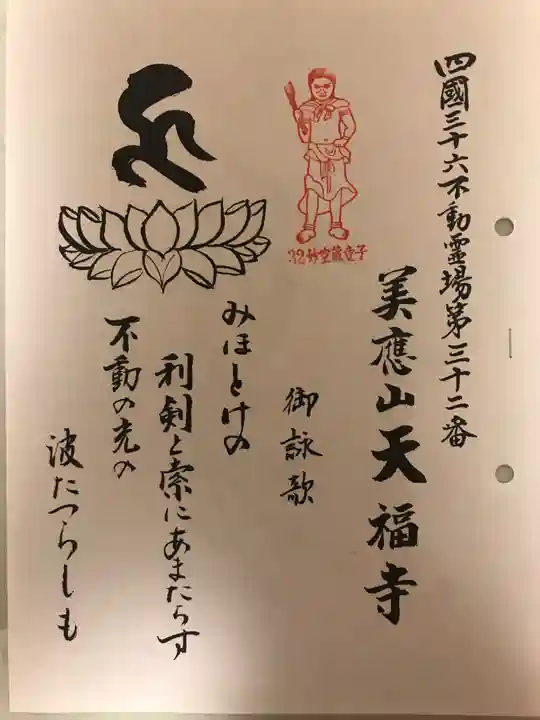 四國三十六不動霊場第三十二番
美應山天福寺
御詠歌
みほとけの
利剣と索にあまたらす
不動の光の
波たつらしも
32妙空蔵童子